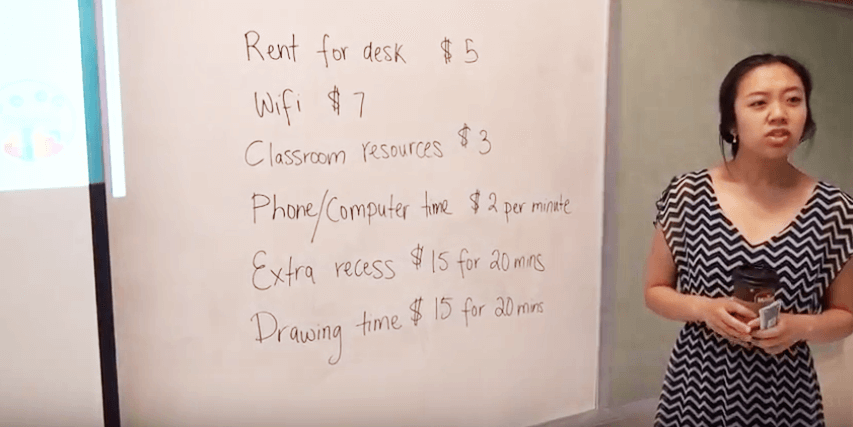 Rent for desk $5
Wifi $7
Classroom resources $3
Phone/Computer time $2 per minute
Extra recess $15 for 20 mins
Drawing time $15 for 20 mins